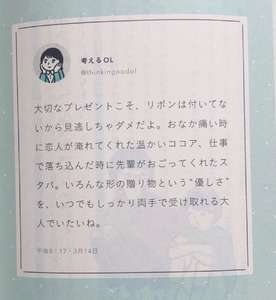 考えるOL
@thinkingnoodol
大切なプレゼントこそ、リボンは付いてな
いから見逃しちゃダメだよ。おなか痛い時
に恋人が淹れてくれた温かいココア、仕事
で落ち込んだ時に先輩がおごってくれたス
タバ。いろんな形の贈り物という“優しさ”
を、いつでもしっかり両手で受け取れる大
人でいたいね。
3月14日